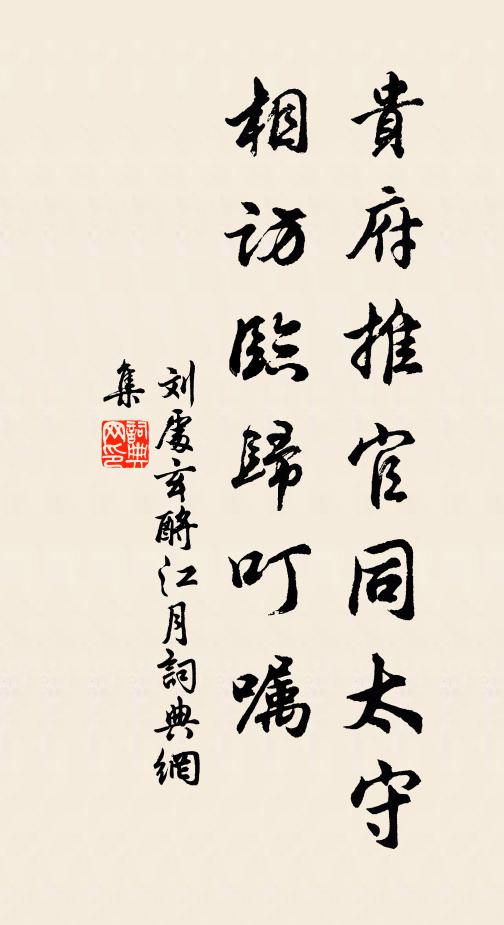 貴府推官同太守
相訪臨歸叮嘱
刘處玄酹江月詞典網
集
詞典
网印